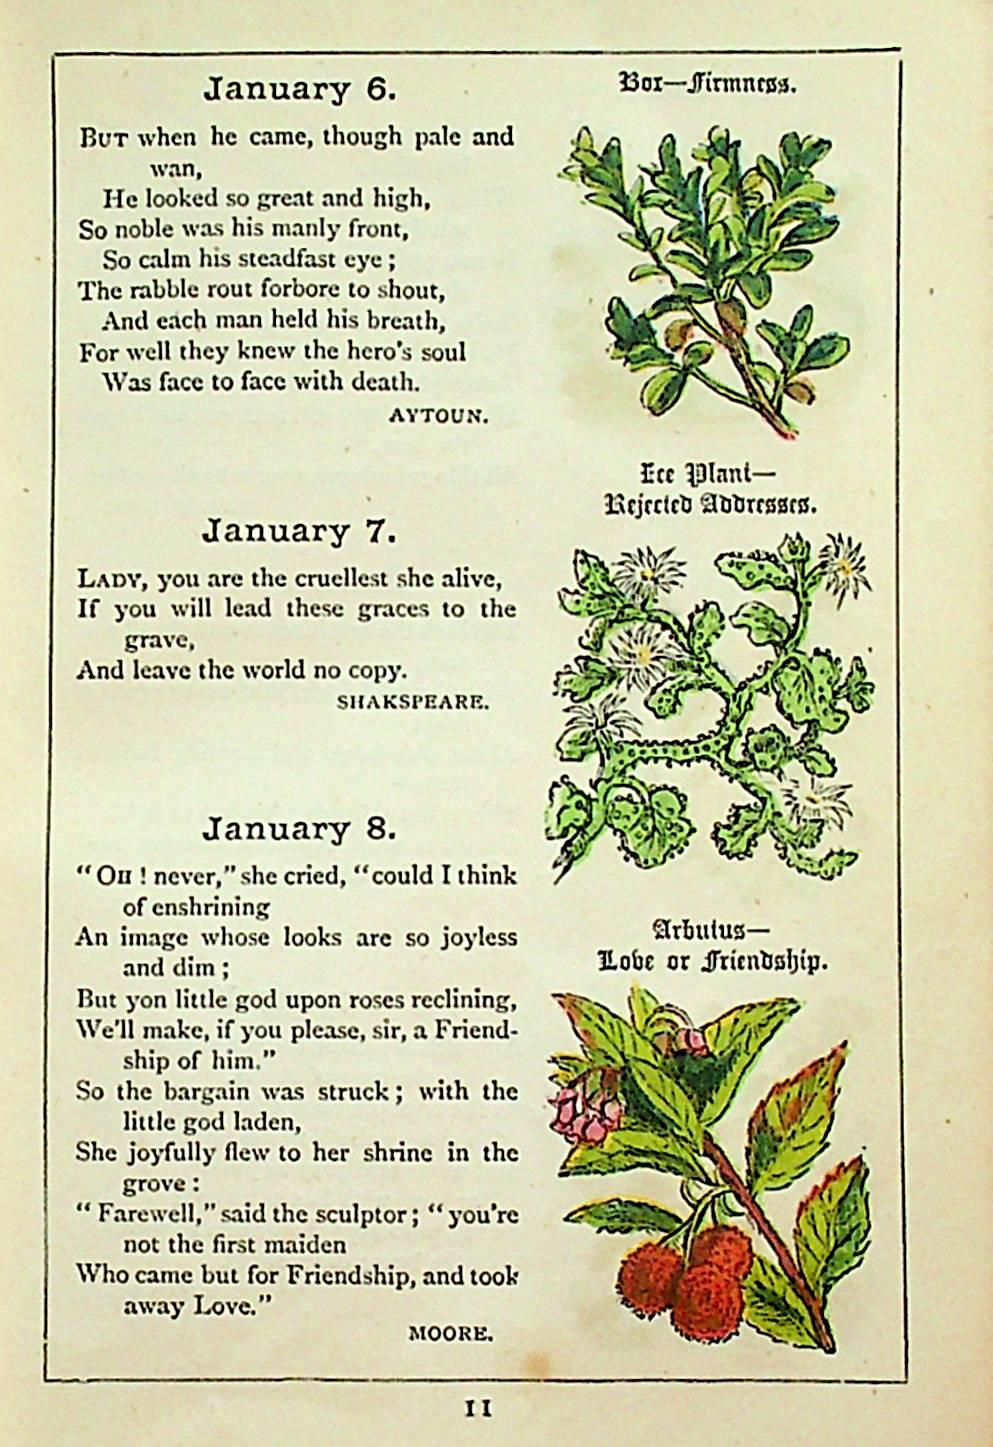 January 6.
BUT when he came, though pale and
wan,
He looked so great and high,
So noble was his manly front,
So calm his steadfast eye;
The rabble rout forbore to shout,
And each man held his breath,
For well they knew the hero's soul
Was face to face with death.
AYTOUN.
Box—Firmness.
January 7.
LADY, you are the cruellest she alive,
If you will lead these graces to the
grave,
And leave the world no copy.
SHAKSPEARE.
Ice Plant—
Rejected Addresses.
January 8.
"OH! never," she cried, "could I think
of enshrining
An image whose looks are so joyless
and dim;
But yon little god upon roses reclining,
We'll make, if you please, sir, a Friend-
ship of him."
So the bargain was struck; with the
little god laden,
She joyfully flew to her shrine in the
grove:
"Farewell," said the sculptor; "you're
not the first maiden
Who came but for Friendship, and took
away Love."
MOORE.
Arbutus—
Love or Friendship.
11